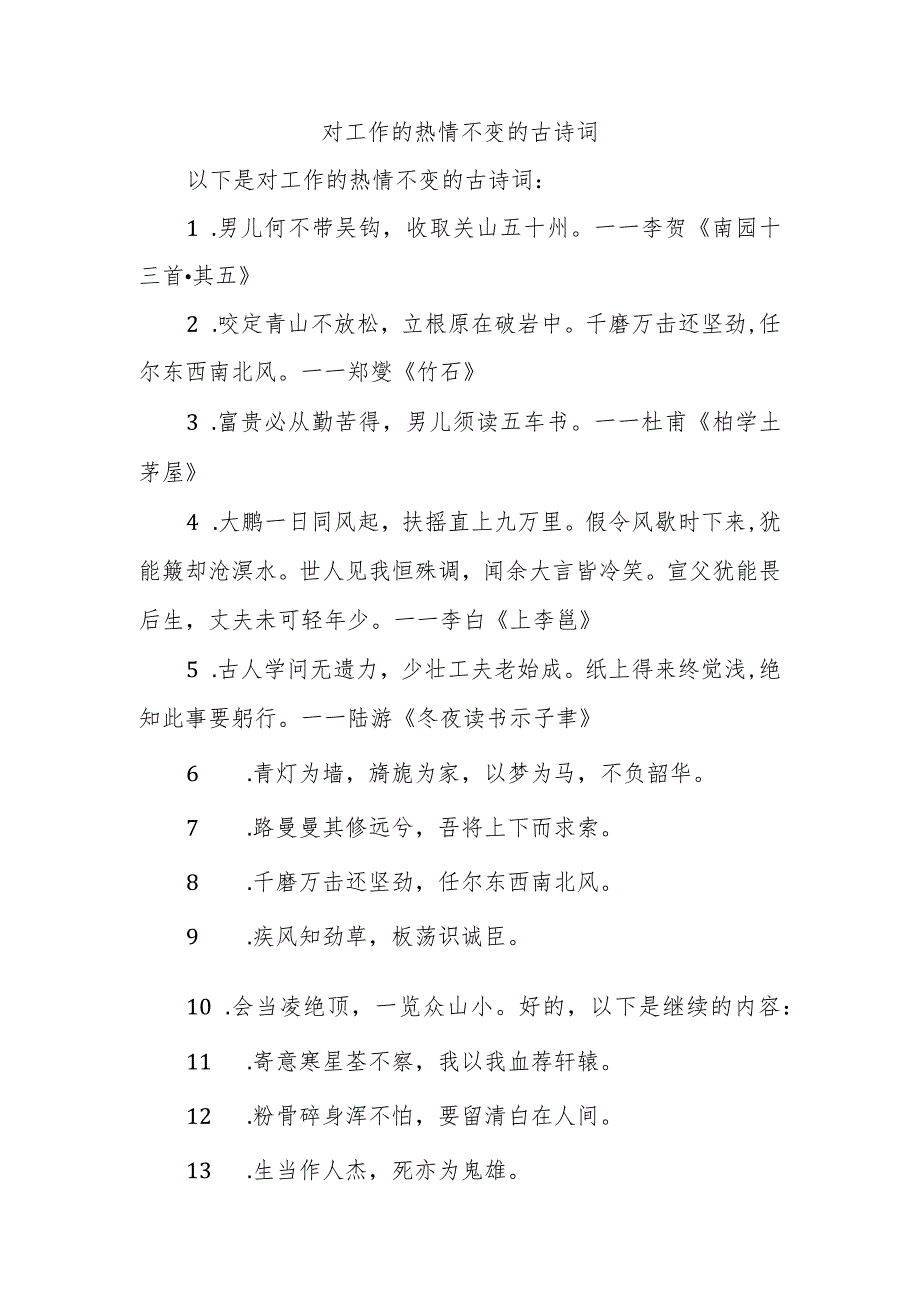 对工作的热情不变的古诗词
以下是对工作的热情不变的古诗词：
1 .男儿何不带吴钩，收取关山五十州。一一李贺《南园十
三首•其五》
2 .咬定青山不放松，立根原在破岩中。千磨万击还坚劲,任
尔东西南北风。一一郑燮《竹石》
3 .富贵必从勤苦得，男儿须读五车书。一一杜甫《柏学土
茅屋》
4 .大鹏一日同风起，扶摇直上九万里。假令风歇时下来,犹
能簸却沧溟水。世人见我恒殊调，闻余大言皆冷笑。宣父犹能畏
后生，丈夫未可轻年少。一一李白《上李邕》
5 .古人学问无遗力，少壮工夫老始成。纸上得来终觉浅,绝
知此事要躬行。一一陆游《冬夜读书示子聿》
6 .青灯为墙，旖旎为家，以梦为马，不负韶华。
7 .路曼曼其修远兮，吾将上下而求索。
8 .千磨万击还坚劲，任尔东西南北风。
9 .疾风知劲草，板荡识诚臣。
10 .会当凌绝顶，一览众山小。好的，以下是继续的内容：
11 .寄意寒星荃不察，我以我血荐轩辕。
12 .粉骨碎身浑不怕，要留清白在人间。
13 .生当作人杰，死亦为鬼雄。